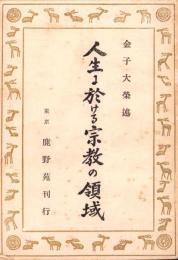 金子大榮述
人生に於ける宗教の領域
東京 鹿野苑刊行